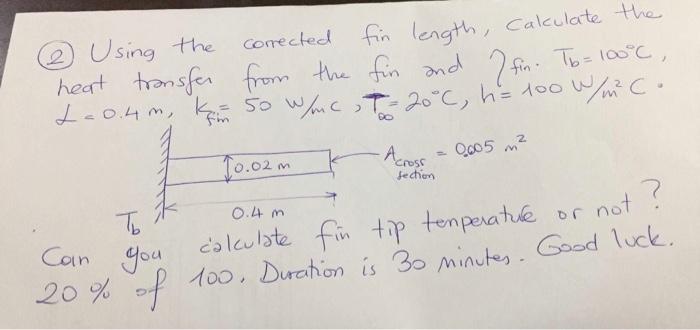 ② Using the corrected fin length, Calculate the
heat transfer from the fin and η fin. Tb = 100°C,
L = 0.4 m, kfin = 50 W/mC, T∞ = 20°C, h = 100 W/m²C.
0.02 m
Across section = 0.005 m²
0.4 m
Tb
Can you calculate fin tip temperature or not?
20% of 100. Duration is 30 minutes. Good luck.